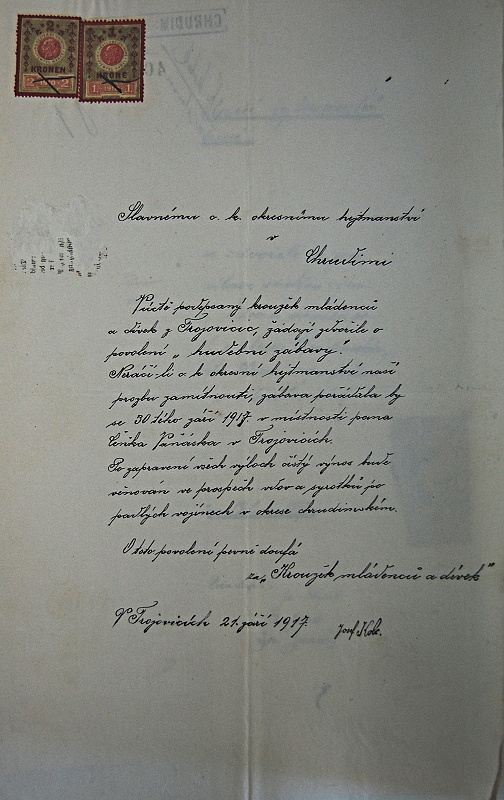 CHRUDIM
2
KRONEN
2 2
1
KRONE
1 1
Slavnému c. k. okresnímu hejtmanství
v
Chrudimi
Níže podepsaný kroužek mládenců
a dívek z Trojovicic, žádají zdvořile o
povolení „hudební zábavy".
Neráčí-li c. k. okresní hejtmanství naší
prozbu zamítnouti, zábava pořádala by
se 30tého září 1917 v místnosti pana
Čeňka Vaňáska v Trojovicích.
Po zapravení všech výloch čistý výnos bude
věnován ve prospěch vdov a syrotků po
padlých vojínech v okrese chrudimském.
O toto povolení pevně doufá
za „Kroužek mládenců a dívek"
V Trojovicích 21. září 1917.
Josef Kolc.